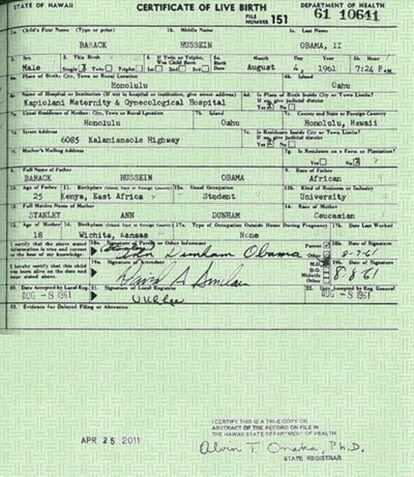 STATE OF HAWAII
CERTIFICATE OF LIVE BIRTH
DEPARTMENT OF HEALTH
FILE NUMBER 151
61 10641
1a. Child's First Name (Type or print)
1b. Middle Name
1c. Last Name
BARACK
HUSSEIN
OBAMA, II
2. Sex
3. This Birth
4. If Twin or Triplet,
5a. Birth Date
Month
Day
Year
5b. Hour
Male
Single
Twin
Triplet
1st
2nd
3rd
August
4,
1961
7:24 P.M.
6a. Place of Birth: City, Town or Rural Location
6b. Island
Honolulu
Oahu
6c. Name of Hospital or Institution (If not in hospital or institution, give street address)
6d. Is Place of Birth Inside City or Town Limits?
If no, give judicial district
Kapiolani Maternity & Gynecological Hospital
Yes
No
7a. Usual Residence of Mother: City, Town or Rural Location
7b. Island
7c. County and State or Foreign Country
Honolulu
Oahu
Honolulu, Hawaii
7d. Street Address
7e. Is Residence Inside City or Town Limits?
If no, give judicial district
6085 Kalanianaole Highway
Yes
No
7f. Mother's Mailing Address
7g. Is Residence on a Farm or Plantation?
Yes
No
8. Full Name of Father
9. Race of Father
BARACK
HUSSEIN
OBAMA
African
10. Age of Father
11. Birthplace (Island, State or Foreign Country)
12a. Usual Occupation
12b. Kind of Business or Industry
25
Kenya, East Africa
Student
University
13. Full Maiden Name of Mother
14. Race of Mother
STANLEY
ANN
DUNHAM
Caucasian
15. Age of Mother
16. Birthplace (Island, State or Foreign Country)
17a. Type of Occupation Outside Home During Pregnancy
17b. Date Last Worked
18
Wichita, Kansas
None
I certify that the above stated information is true and correct to the best of my knowledge.
18a. Signature of Parent or Other Informant
Parent
Other
18b. Date of Signature
Dunham Obama
8-7-61
I hereby certify that this child was born alive on the date and hour stated above.
19a. Signature of Attendant
M.D.
D.O.
Midwife
Other
19b. Date of Signature
David A Sinclair
8-8-61
20. Date Accepted by Local Reg.
21. Signature of Local Registrar
22. Date Accepted by Reg. General
AUG -8 1961
AUG -8 1961
23. Evidence for Delayed Filing or Alteration
APR 25 2011
I CERTIFY THIS IS A TRUE COPY OR
ABSTRACT OF THE RECORD ON FILE IN
THE HAWAII STATE DEPARTMENT OF HEALTH
Alvin T. Onaka, Ph.D.
STATE REGISTRAR